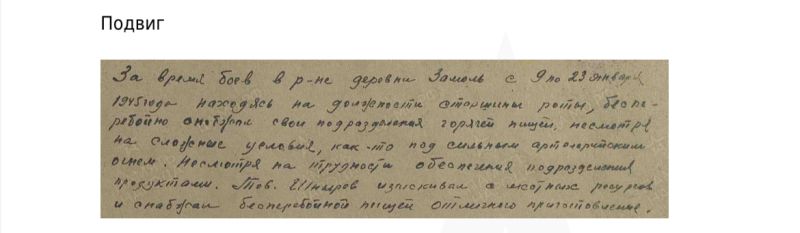 Подвиг
За время боев в р-не деревни Замоль с 9 по 23 января
1945 года находясь на должности старшины роты, беспе-
ребойно снабжал свои подразделения горячей пищей, несмотря
на сложные условия, как-то под сильным артелеритским
огнем. Несмотря на трудности обеспечения подразделения
продуктами. Тов. Шныров изыскивал с местных ресурсов
и снабжал бесперебойной пищей отличного приготовления.